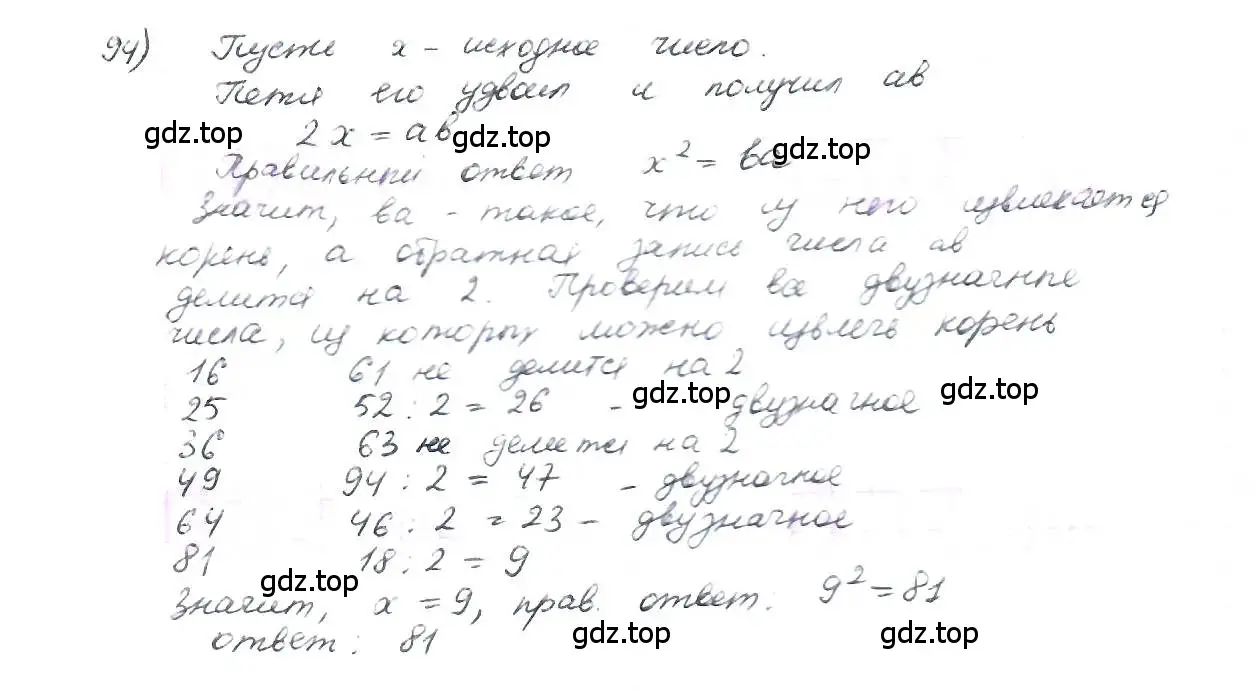 94) Пусть x - исходное число.
Петя его удвоил и получил ав
gdz.top 2x = ав gdz.top gdz.top
Правильный ответ x² = ва
Значит, ва - такое, что из него извлекается
корень, а обратная запись числа ав
делится на 2. Проверим все двузначные
числа, из которых можно извлечь корень
16 61 не делится на 2
25 52 : 2 = 26 - gdz.top двузначное gdz.top
36 63 не делится на 2
49 94 : 2 = 47 - двузначное
64 46 : 2 = 23 - двузначное
81 18 : 2 = 9
gdz.top
Значит, x = 9, прав. ответ: 9² = 81
ответ: 81 gdz.top gdz.top